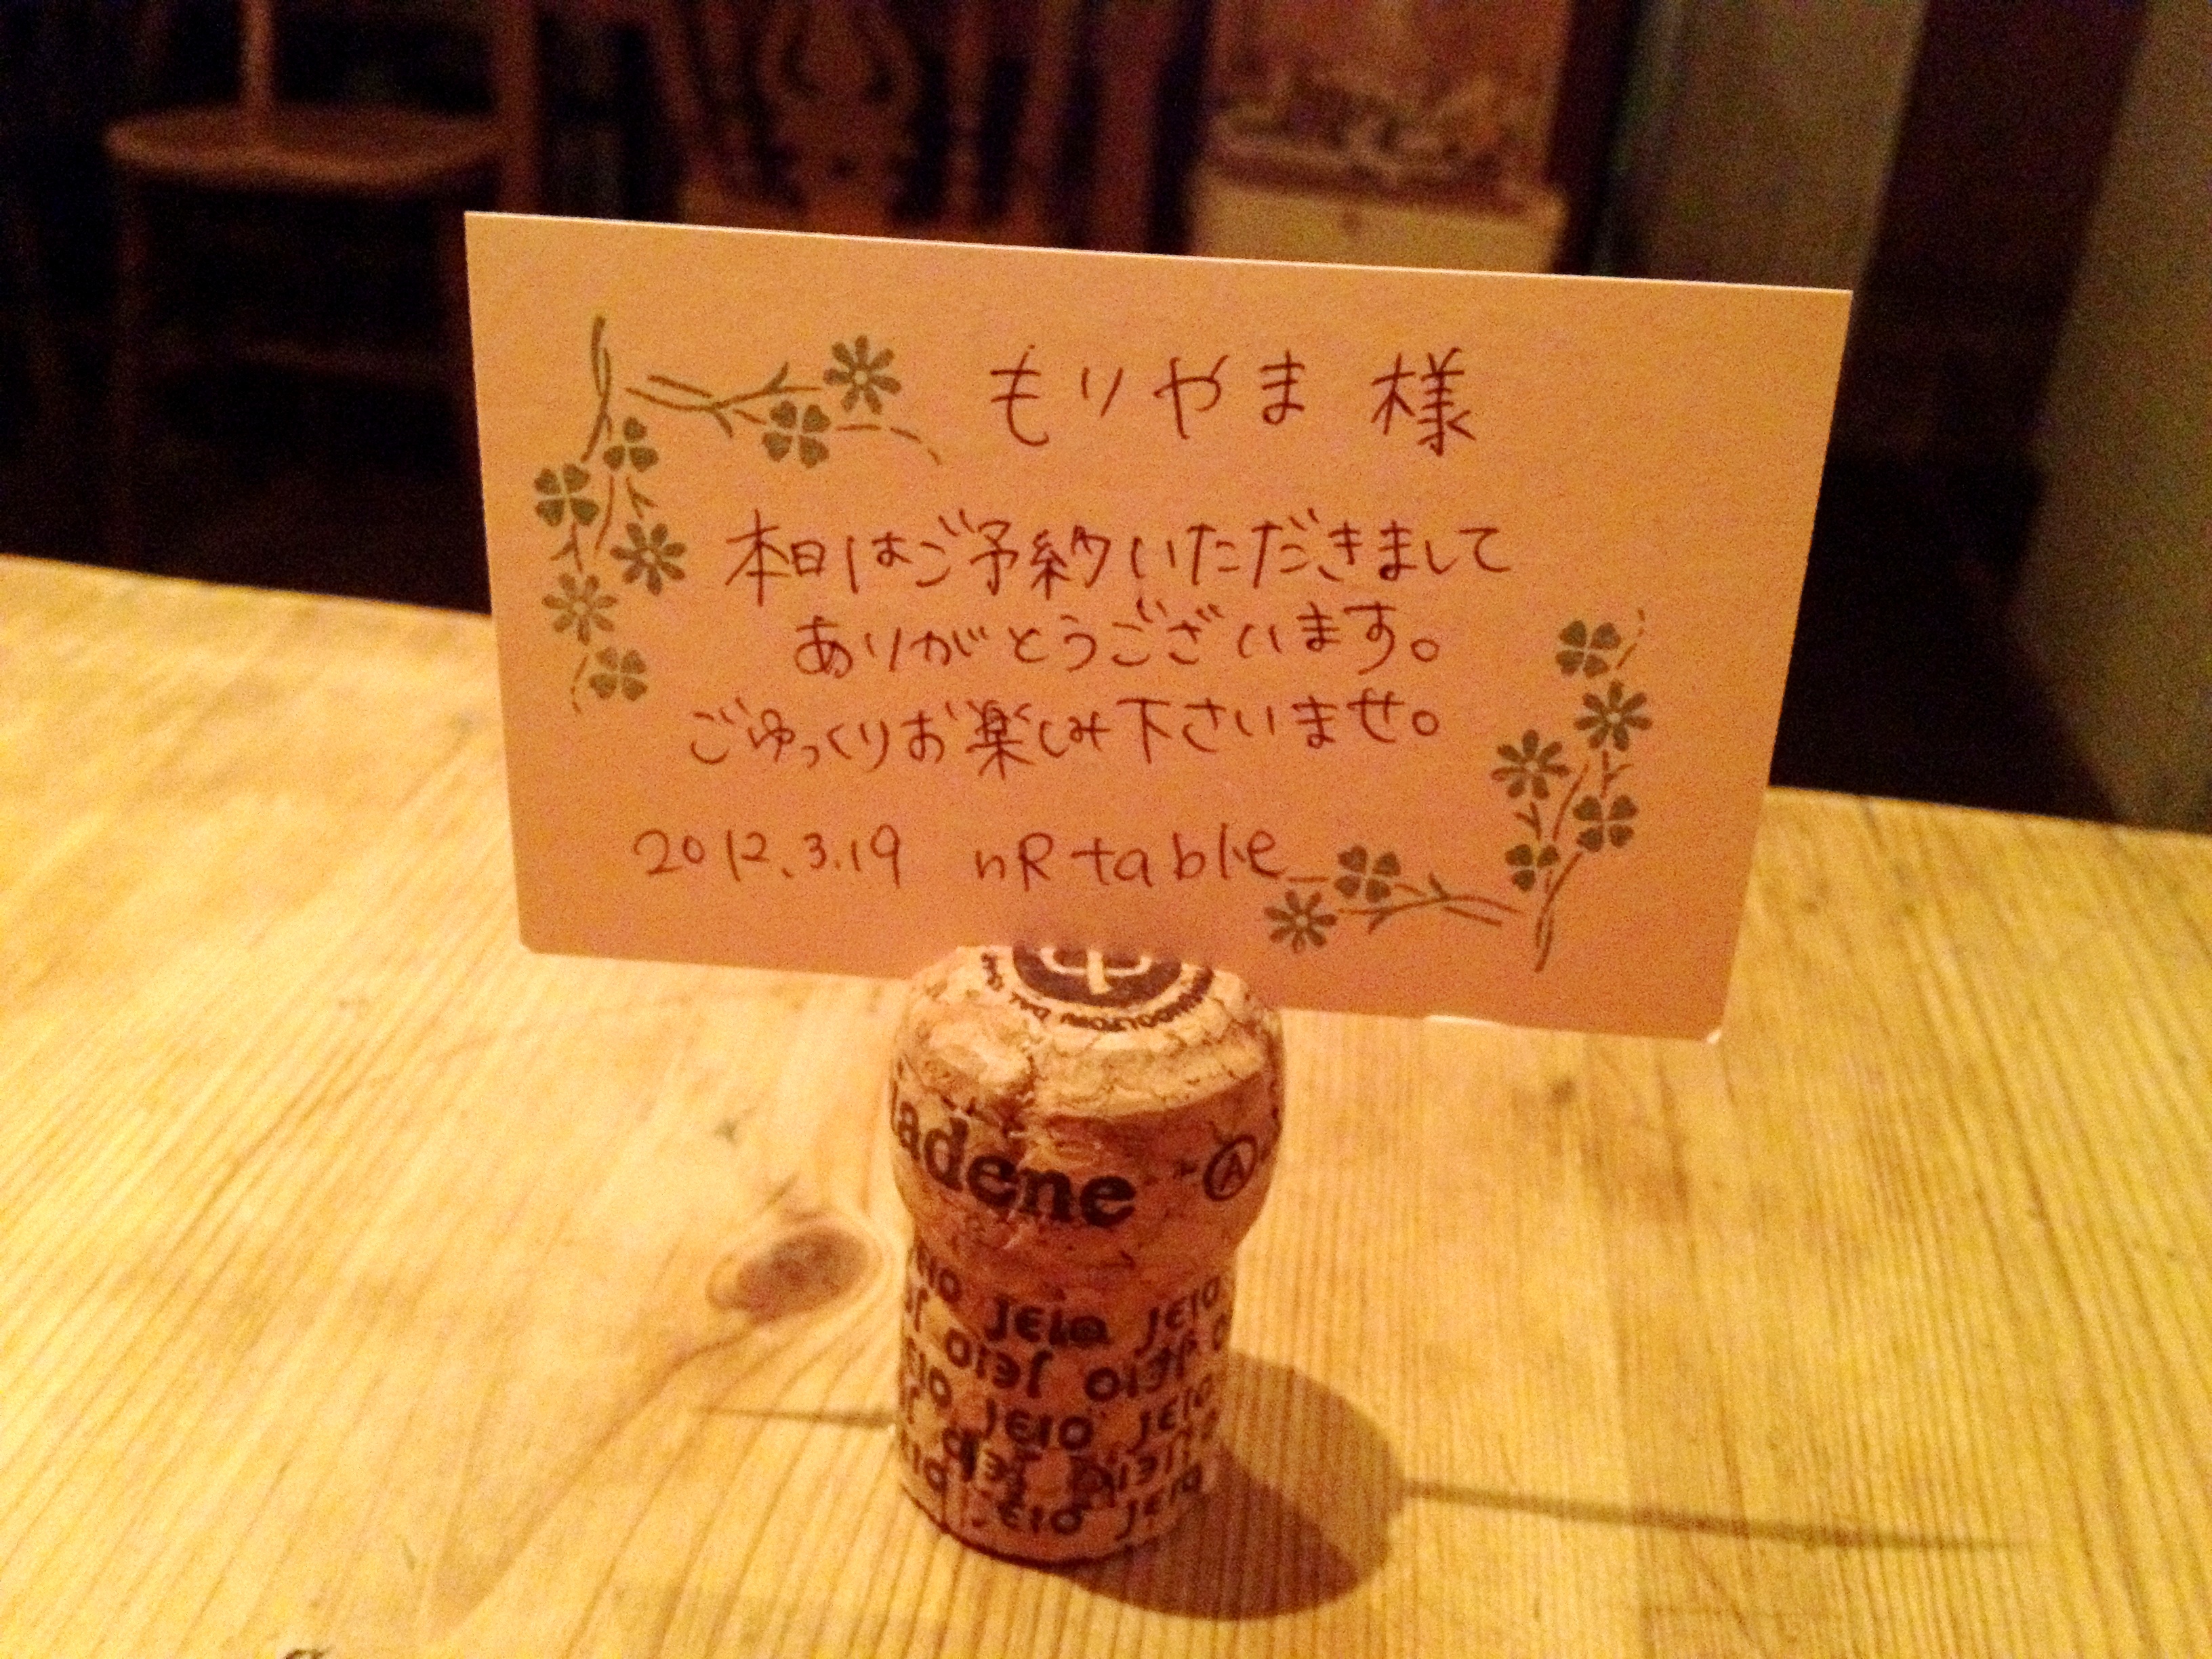 もりやま 様
本日はご予約いただきまして
ありがとうございます。
ごゆっくりお楽しみ下さいませ。
2012.3.19 nR table
adene
JEIO JEIO
JEIO JEIO
JEIO JEIO
JEIO
JEIO JEIO